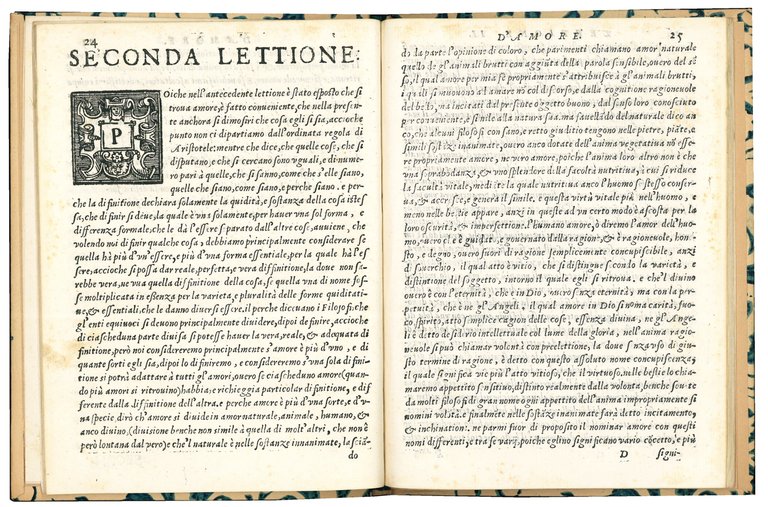 24
SECONDA LETTIONE.
POiche nell'antecedente lettione è stato esposto che si
troua amore, è fatto conueniente, che nella presen-
te anchora si dimostri che cosa egli si sia, accioche
punto non ci dipartiamo dall'ordinata regola di
Aristotele; mentre che dice, che quelle cose, che si
disputano, e che si cercano sono vguali, e di nume-
ro pari à quelle, che si sanno, come che s'elle siano,
quelle che siano, come siano, e perche siano. e per-
che la difinitione dechiara solamente la quidità, e sostanza della cosa istes
sa, che difinir si deue, la quale è vna solamente, per hauer vna sol forma, e
differenza formale, che le dà l'essere separato dall'altre cose, auuiene, che
volendo noi definir qualche cosa, debbiamo principalmente considerare se
quella hà più d'vn'essere, e più d'vna forma essentiale, per la quale hà l'es
sere, accioche si possa dar reale, perfetta, e vera diffinitione, la doue non sa-
rebbe vera, ne vna quella diffinitione della cosa, se quella vna di nome fos-
se moltiplicata in essenza per la varietà, e pluralità delle forme quiditati-
ue, & essentiali, che le danno diuersi essere, il perche diceuano i Filosofi: che
gl'enti equiuoci si deuono principalmente diuidere, dipoi definire, accioche
di ciascheduna parte diuisa si potesse hauer la vera, reale, & adequata di
finitione, però noi considereremo principalmente s'amore è più d'vno, e di
quante sorti egli sia, dipoi lo difiniremo, e considereremo s'vna sola difini-
tione si potrà adattare à tutti gl'amori, ouero se ciascheduno amore (quan-
do più amori si ritrouino) habbia, e richieggia particolar difinitione, e dif
ferente dalla difinitione dell'altra. e perche amore è più d'vna sorte, e d'v-
na specie, dirò ch'amore si diuide in amor naturale, animale, humano, &
anco diuino, (diuisione benche non simile à quella di molt'altri, che non è
però lontana dal vero) e che'l naturale è nelle sostanze innanimate, lasciã-
do
D'AMORE. 25
do da parte l'opinione di coloro, che parimenti chiamano amor naturale
quello de gl'animali brutti con aggiunta della parola sensibile, ouero del sẽ
so, il qual amore per mia fè propriamente s'attribuisce à gl'animali brutti,
i quali si muouono al amare nõ dal discorso, e dalla cognition ragioneuole
del bello, ma incitati dal presente oggetto buono, dal senso loro conosciuto
per conueniente, e simile alla natura sua. ma fauellãdo del naturale dico an
co, che alcuni filosofi con sano, e retto giuditio tengono nelle pietre, piãte, e
simili sostãze inanimate, ouero anco dotate dell'anima vegetatiua nõ es-
sere propriamente amore, ne vero amore, poiche l'anima loro altro non è che
vna soprabondãza, & vno splendore della facoltà nutritiua, à cui si riduce
la facultà vitale, mediãte la quale nutritiua anco l'huomo se stesso conser-
ua, & accresce, e genera il simile, e questa virtù vitale più nell'huomo, e
meno nelle bestie appare, anzi in queste ad vn certo modo è ascosta per la
loro oscurità, & imperfettione. l'humano amore, ò diremo l'amor dell'huo-
mo, ouero è guidato, e gouernato dalla ragione, & è ragioneuole, hone-
sto, e degno, ouero fuori di ragione semplicemente concupiscibile, anzi
di souerchio, il qual atto vitio, che si distingue secondo la varietà, e
distintione del soggetto, intorno il quale egli si ritroua. e che'l diuino
ouero è con eternità, che è in Dio, ouero senza eternità, ma con la per-
petuità, che è ne gl'Angeli. il qual amore in Dio si noma carità, fuo-
co, spirito, atto semplice, cagion delle cose, essenza diuina, ne gl'Ange-
li è detto desiderio intellettuale col lume della gloria, nell'anima ragio-
neuole si può chiamar volontà con preelettione, la doue senza vso di giu-
sto termine di ragione, è detto con questo assoluto nome concupiscenza,
il quale significa vie più l'atto vitioso, che il virtuoso. nelle bestie lo chia-
maremo appetito sensitiuo, distinto realmente dalla volontà, benche sou'te
da molti filosofi di gran nome ogni appetito dell'anima impropriamente si
nomini volõtà. e finalmẽte nelle sostãze inanimate sarà detto incitamento,
& inchinatione. ne parmi fuor di proposito il nominar amore con questi
nomi differenti, e tra se varij, poiche eglino significano vario cõcetto, e più
D signi-